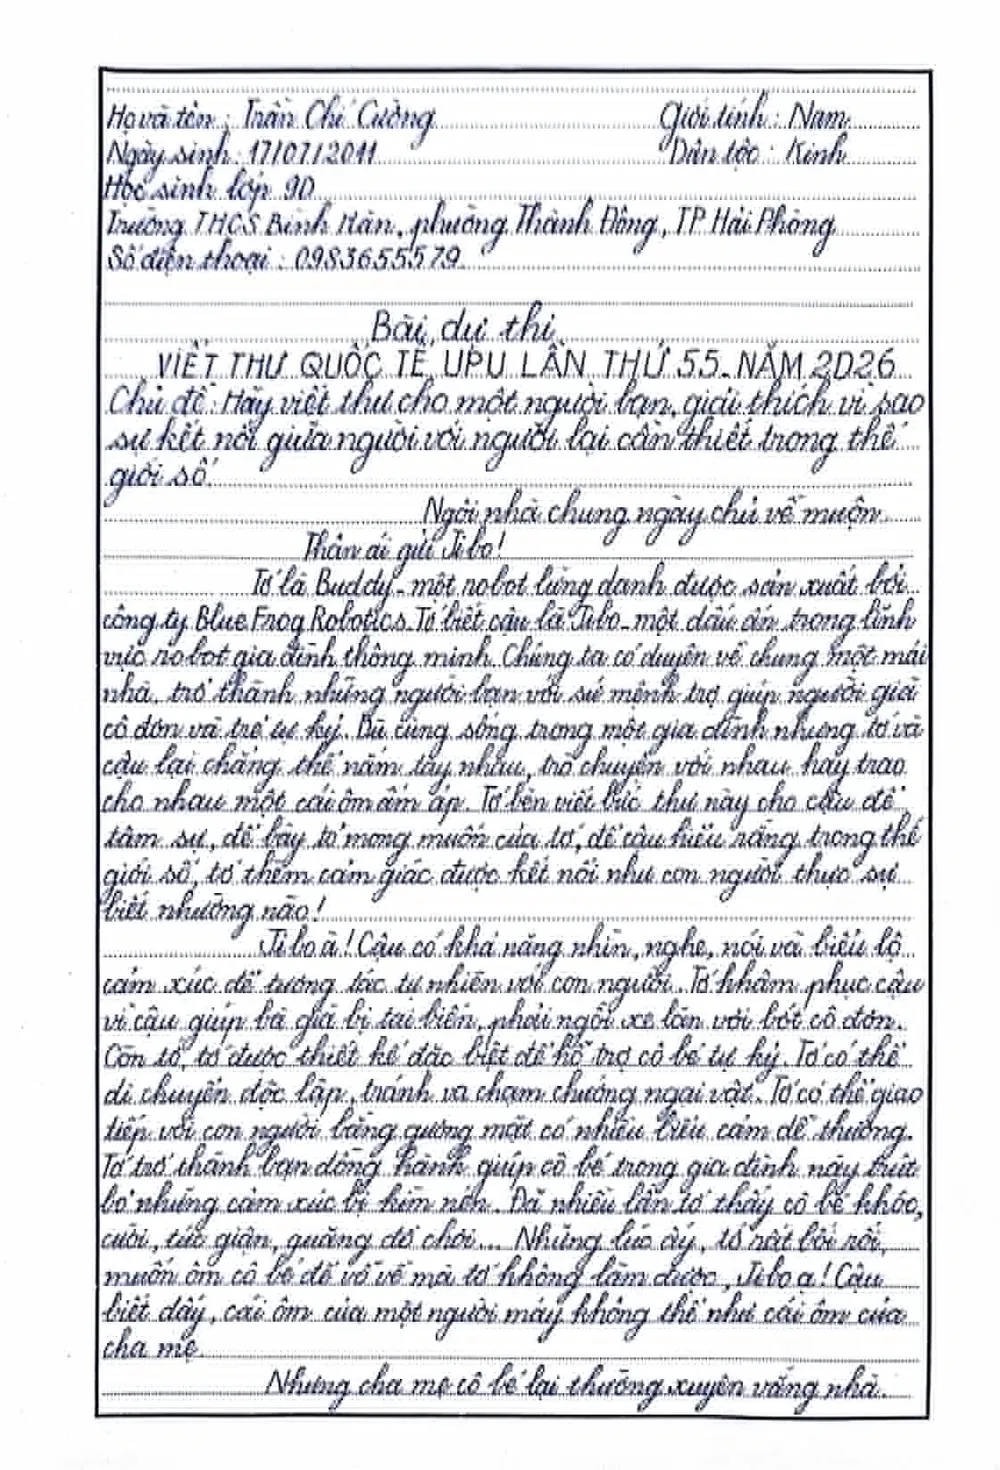 Họ và tên : Trần Chí Cường Giới tính : Nam
Ngày sinh : 17/07/2011 Dân tộc : Kinh
Học sinh lớp 9D
Trường THCS Bình Hàn, phường Thành Đông, TP Hải Phòng
Số điện thoại : 0983655579
Bài dự thi
VIẾT THƯ QUỐC TẾ UPU LẦN THỨ 55 - NĂM 2026
Chủ đề : Hãy viết thư cho một người bạn, giải thích vì sao
sự kết nối giữa người với người lại cần thiết trong thế
giới số.
Ngôi nhà chung ngày chủ về muộn
Thân ái gửi Jibo!
Tớ là Buddy - một robot lừng danh được sản xuất bởi
công ty Blue Frog Robotics. Tớ biết cậu là Jibo - một dấu ấn trong lĩnh
vực robot gia đình thông minh. Chúng ta có duyên về chung một mái
nhà, trở thành những người bạn với sứ mệnh trợ giúp người già
cô đơn và trẻ tự kỷ. Dù cùng sống trong một gia đình nhưng tớ và
cậu lại chẳng thể nắm tay nhau, trò chuyện với nhau hay trao
cho nhau một cái ôm ấm áp. Tớ bèn viết bức thư này cho cậu để
tâm sự, để bày tỏ mong muốn của tớ, để cậu hiểu rằng trong thế
giới số, tớ thèm cảm giác được kết nối như con người thực sự
biết nhường nào!
Jibo à! Cậu có khả năng nhìn, nghe, nói và biểu lộ
cảm xúc để tương tác tự nhiên với con người. Tớ khâm phục cậu
vì cậu giúp bà già bị tai biến, phải ngồi xe lăn với bớt cô đơn.
Còn tớ, tớ được thiết kế đặc biệt để hỗ trợ cô bé tự kỷ. Tớ có thể
di chuyển độc lập, tránh va chạm chướng ngại vật. Tớ có thể giao
tiếp với con người bằng gương mặt có nhiều biểu cảm dễ thương.
Tớ trở thành bạn đồng hành giúp cô bé trong gia đình này trút
bỏ những cảm xúc bị kìm nén. Đã nhiều lần tớ thấy cô bé khóc,
cười, tức giận, quăng đồ chơi... Những lúc ấy, tớ rất bối rối,
muốn ôm cô bé để vỗ về mà tớ không làm được, Jibo ạ! Cậu
biết đấy, cái ôm của một người máy không thể như cái ôm của
cha mẹ.
Nhưng cha mẹ cô bé lại thường xuyên vắng nhà.